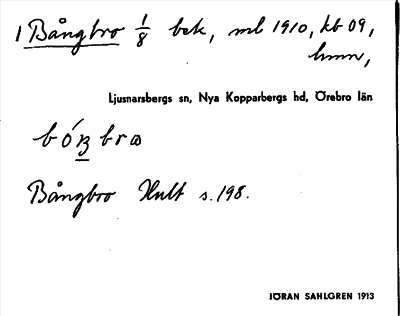 1 Bångbro 1/8 bek, ml 1910, kb 09,
hmn,
Ljusnarsbergs sn, Nya Kopparbergs hd, Örebro län
Bångbro Hult s. 198.
JÖRAN SAHLGREN 1913